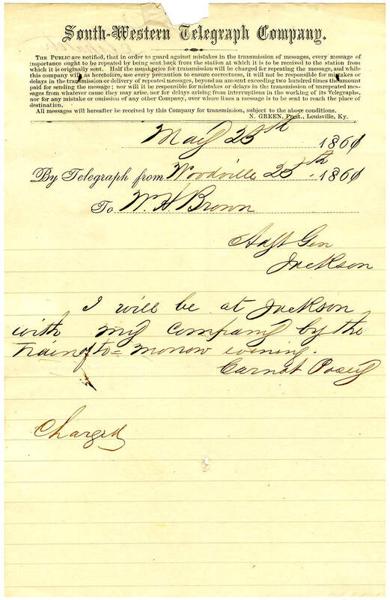 South-Western Telegraph Company.
THE PUBLIC are notified, that in order to guard against mistakes in the transmission of messages, every message of
importance ought to be repeated by being sent back from the station at which it is to be received to the station from
which it is originally sent. Half the usual price for transmission will be charged for repeating the message, and while
this company will as heretofore, use every precaution to ensure correctness, it will not be responsible for mistakes or
delays in the transmission or delivery of repeated messages, beyond an amount exceeding two hundred times the amount
paid for sending the message; nor will it be responsible for mistakes or delays in the transmission of unrepeated messages
from whatever cause they may arise, nor for delays arising from interruptions in the working of its Telegraphs,
nor for any mistake or omission of any other Company, over whose lines a message is to be sent to reach the place of
destination.
All messages will hereafter be received by this Company for transmission, subject to the above conditions.
N. GREEN, Prest., Louisville, Ky.
May 25th 1861
By Telegraph from Woodville 25th 1861
To W. H Brown
Adjt Gen
Jackson
I will be at Jackson
with my company by the
train of to=morrow evening.
Carnot Posey
Charged